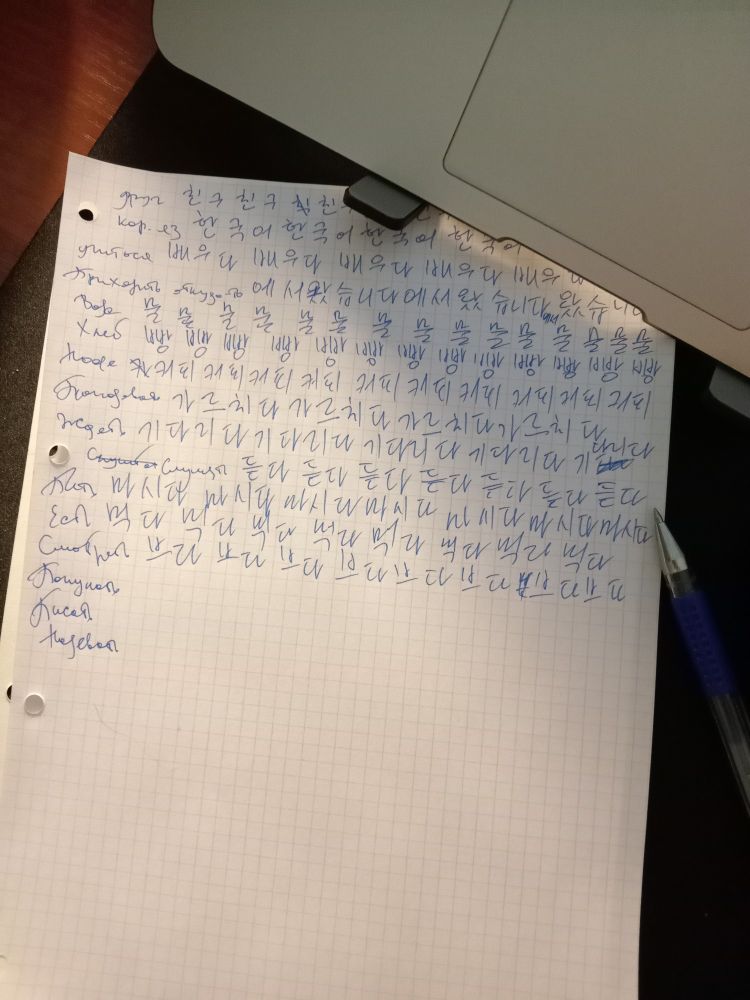 друг 친구 친구 친 친구
кор. яз 한국어 한국어 한국어 한국어
учиться 배우다 배우다 배우다 배우다 배우다
Приходить откудато 에서왔습니다에서 왔습니다 왔습니다
물 물 물 물 물 물 물 물 물 물 물 물 물 물 물
Хлеб 빵 빵 빵 빵 빵 빵 빵 빵 빵 빵 빵 빵 빵
Кофе 커피 커피 커피 커피 커피 커피 커피 커피 커피
가르치다 가르치다 가르치다 가르치다
Ждать 기다리다 기다리다 기다리다 기다리다 기다리다
Слушать 듣다 듣다 듣다 듣다 듣다 듣다 듣다
Пить 마시다 마시다 마시다 마시다 마시다 마시다 마시다
Есть 먹다 먹다 먹다 먹다 먹다 먹다 먹다 먹다
Смотреть 보다 보다 보다 보다 보다 보다 보다 보다
Покупать
Писать